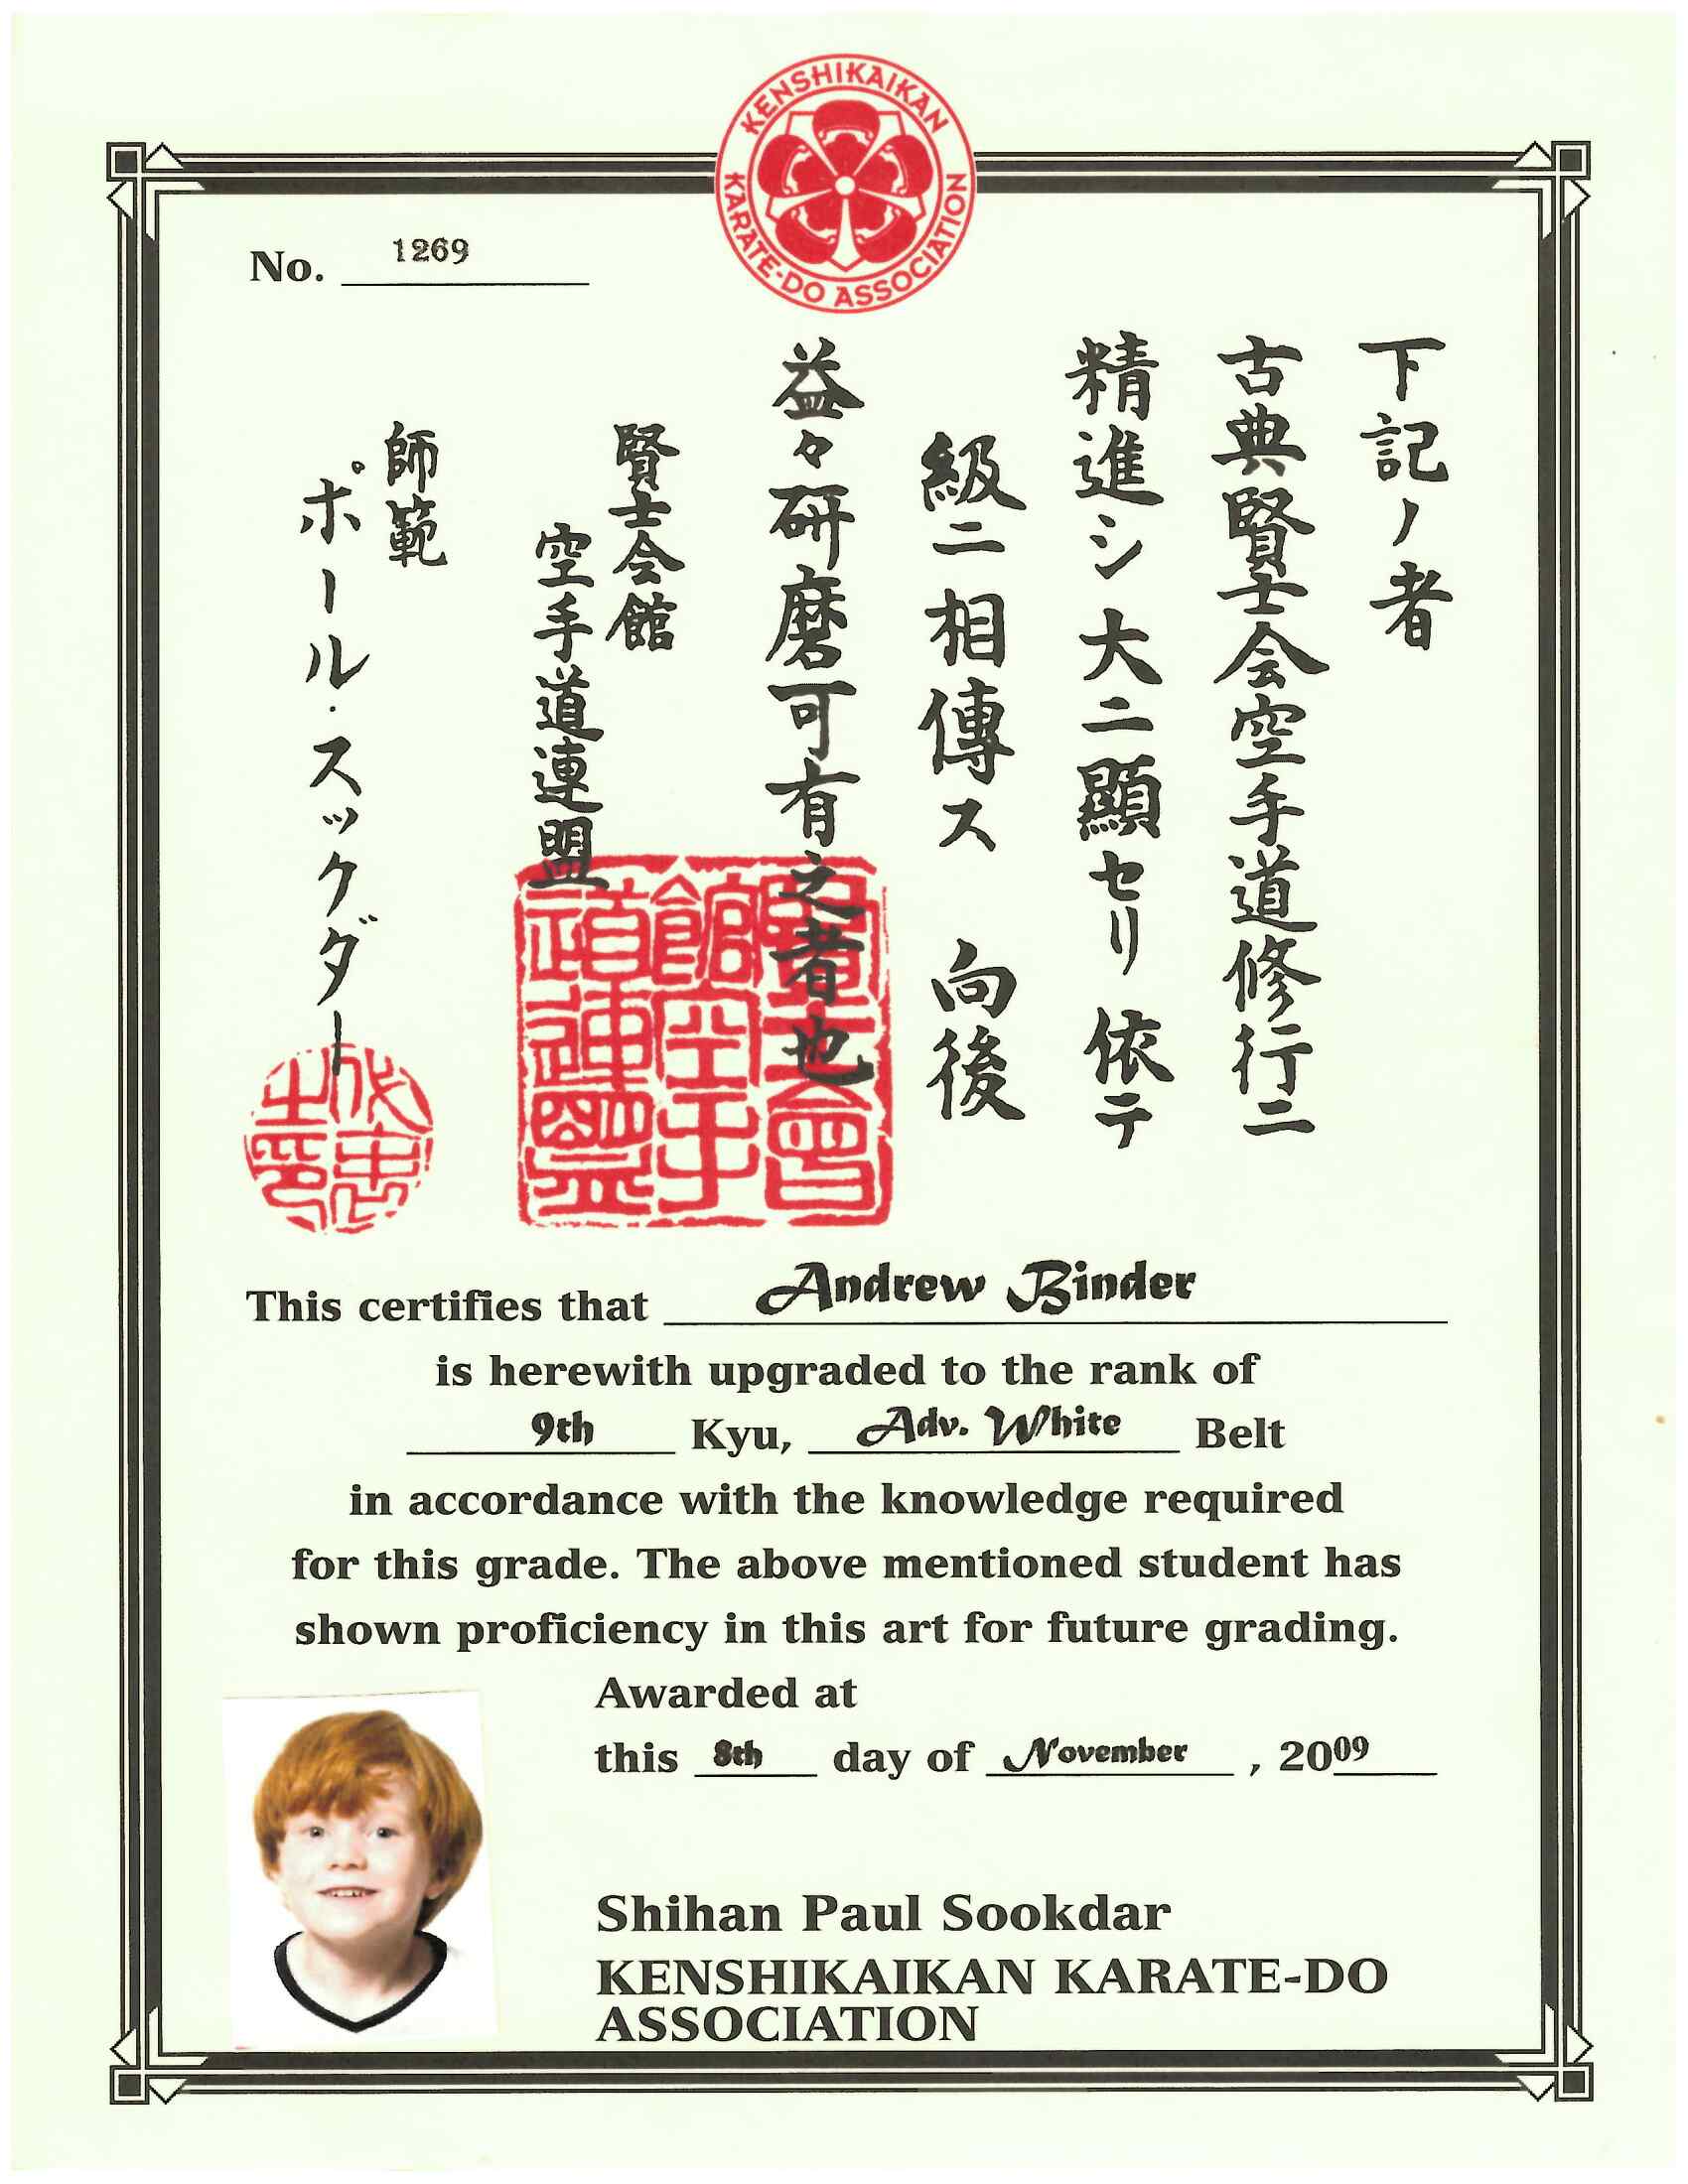 KENSHIKAIKAN
KARATE-DO ASSOCIATION
No. 1269
下記ノ者
古典賢士会空手道修行ニ
精進シ大ニ顕セリ 依テ
級ニ相傳ス 向後
益々研磨可有之者也
賢士会館
空手道連盟
師範
ポール・スックダー
賢士會
館空手
道連盟
This certifies that Andrew Binder
is herewith upgraded to the rank of
9th Kyu, Adv. White Belt
in accordance with the knowledge required
for this grade. The above mentioned student has
shown proficiency in this art for future grading.
Awarded at
this 8th day of November , 2009
Shihan Paul Sookdar
KENSHIKAIKAN KARATE-DO
ASSOCIATION